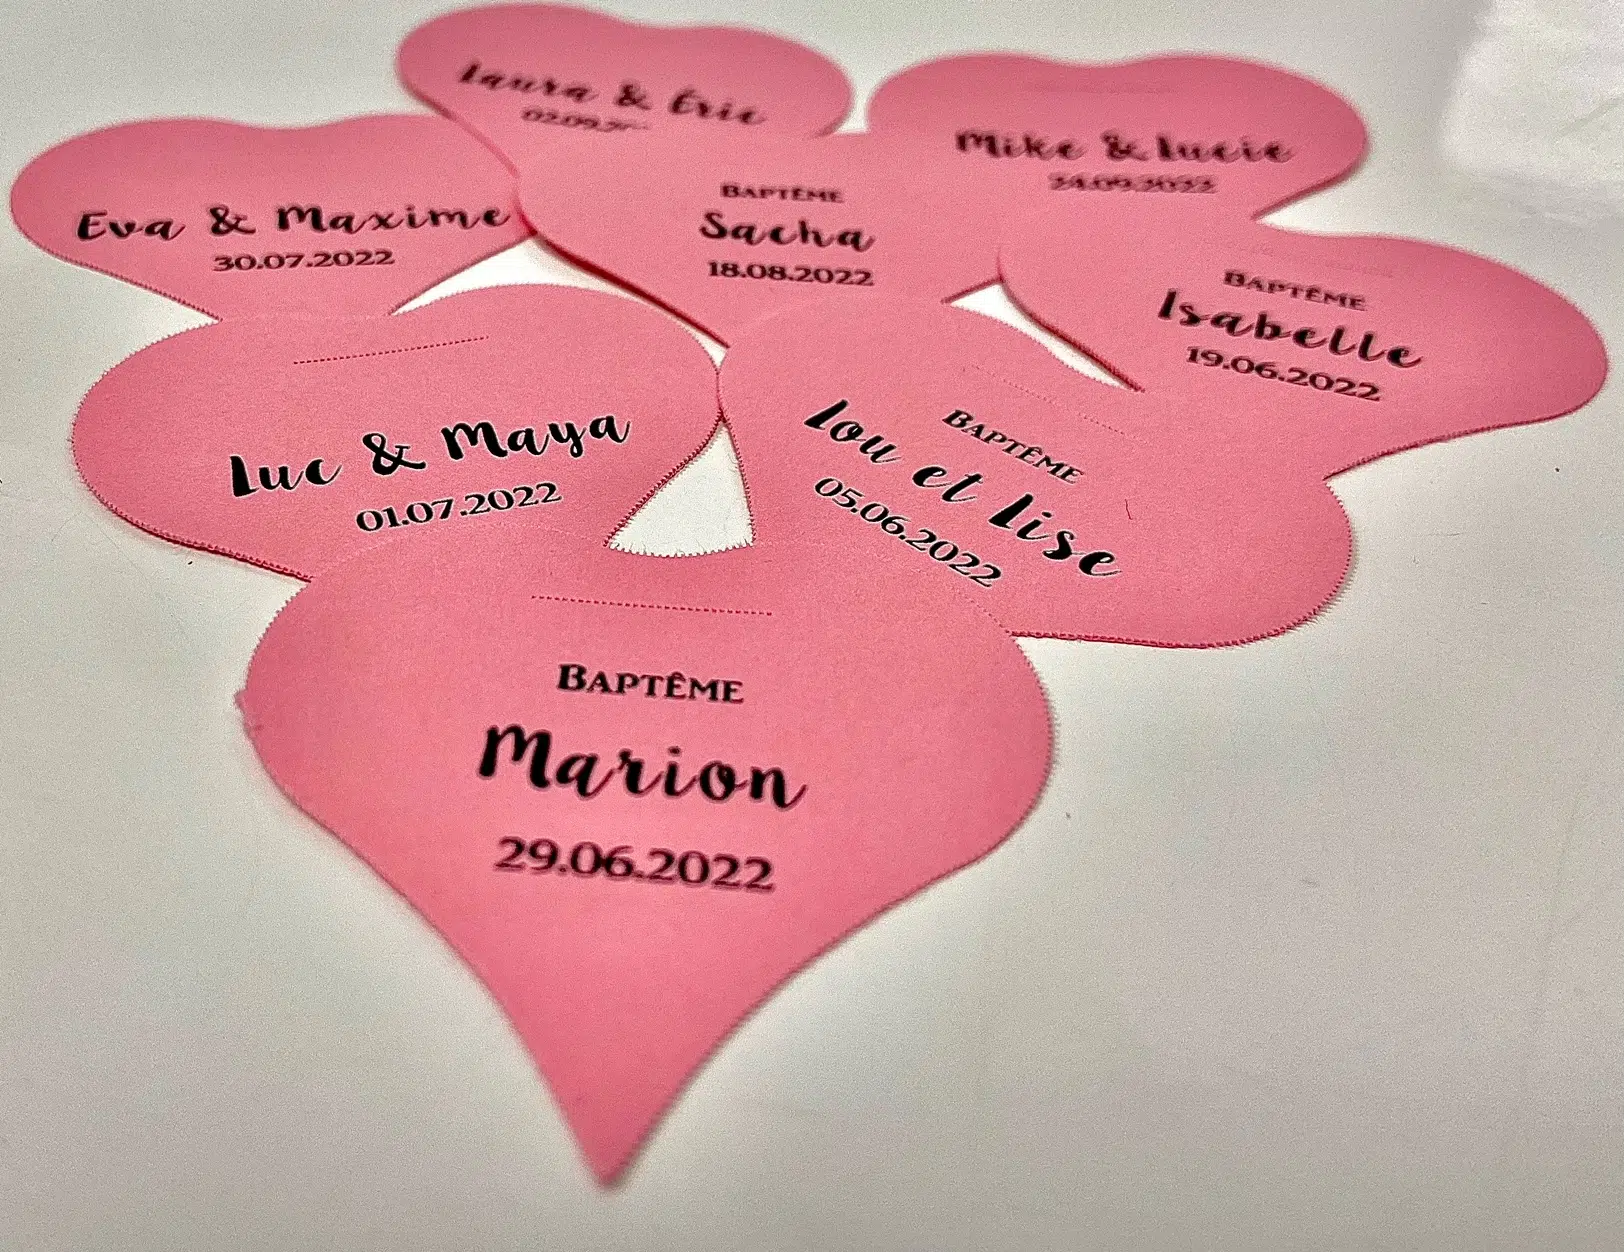 Laura & Éric
02.09.
Mike & Lucie
24.09.2022
Eva & Maxime
30.07.2022
Baptême
Sacha
18.08.2022
Baptême
Isabelle
19.06.2022
Luc & Maya
01.07.2022
Baptême
Lou et Lise
05.06.2022
Baptême
Marion
29.06.2022